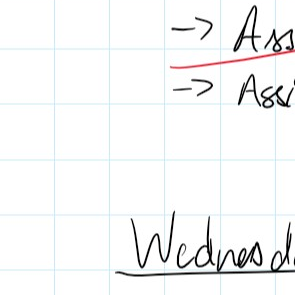 -> Ass
-> Assi
Wednesd